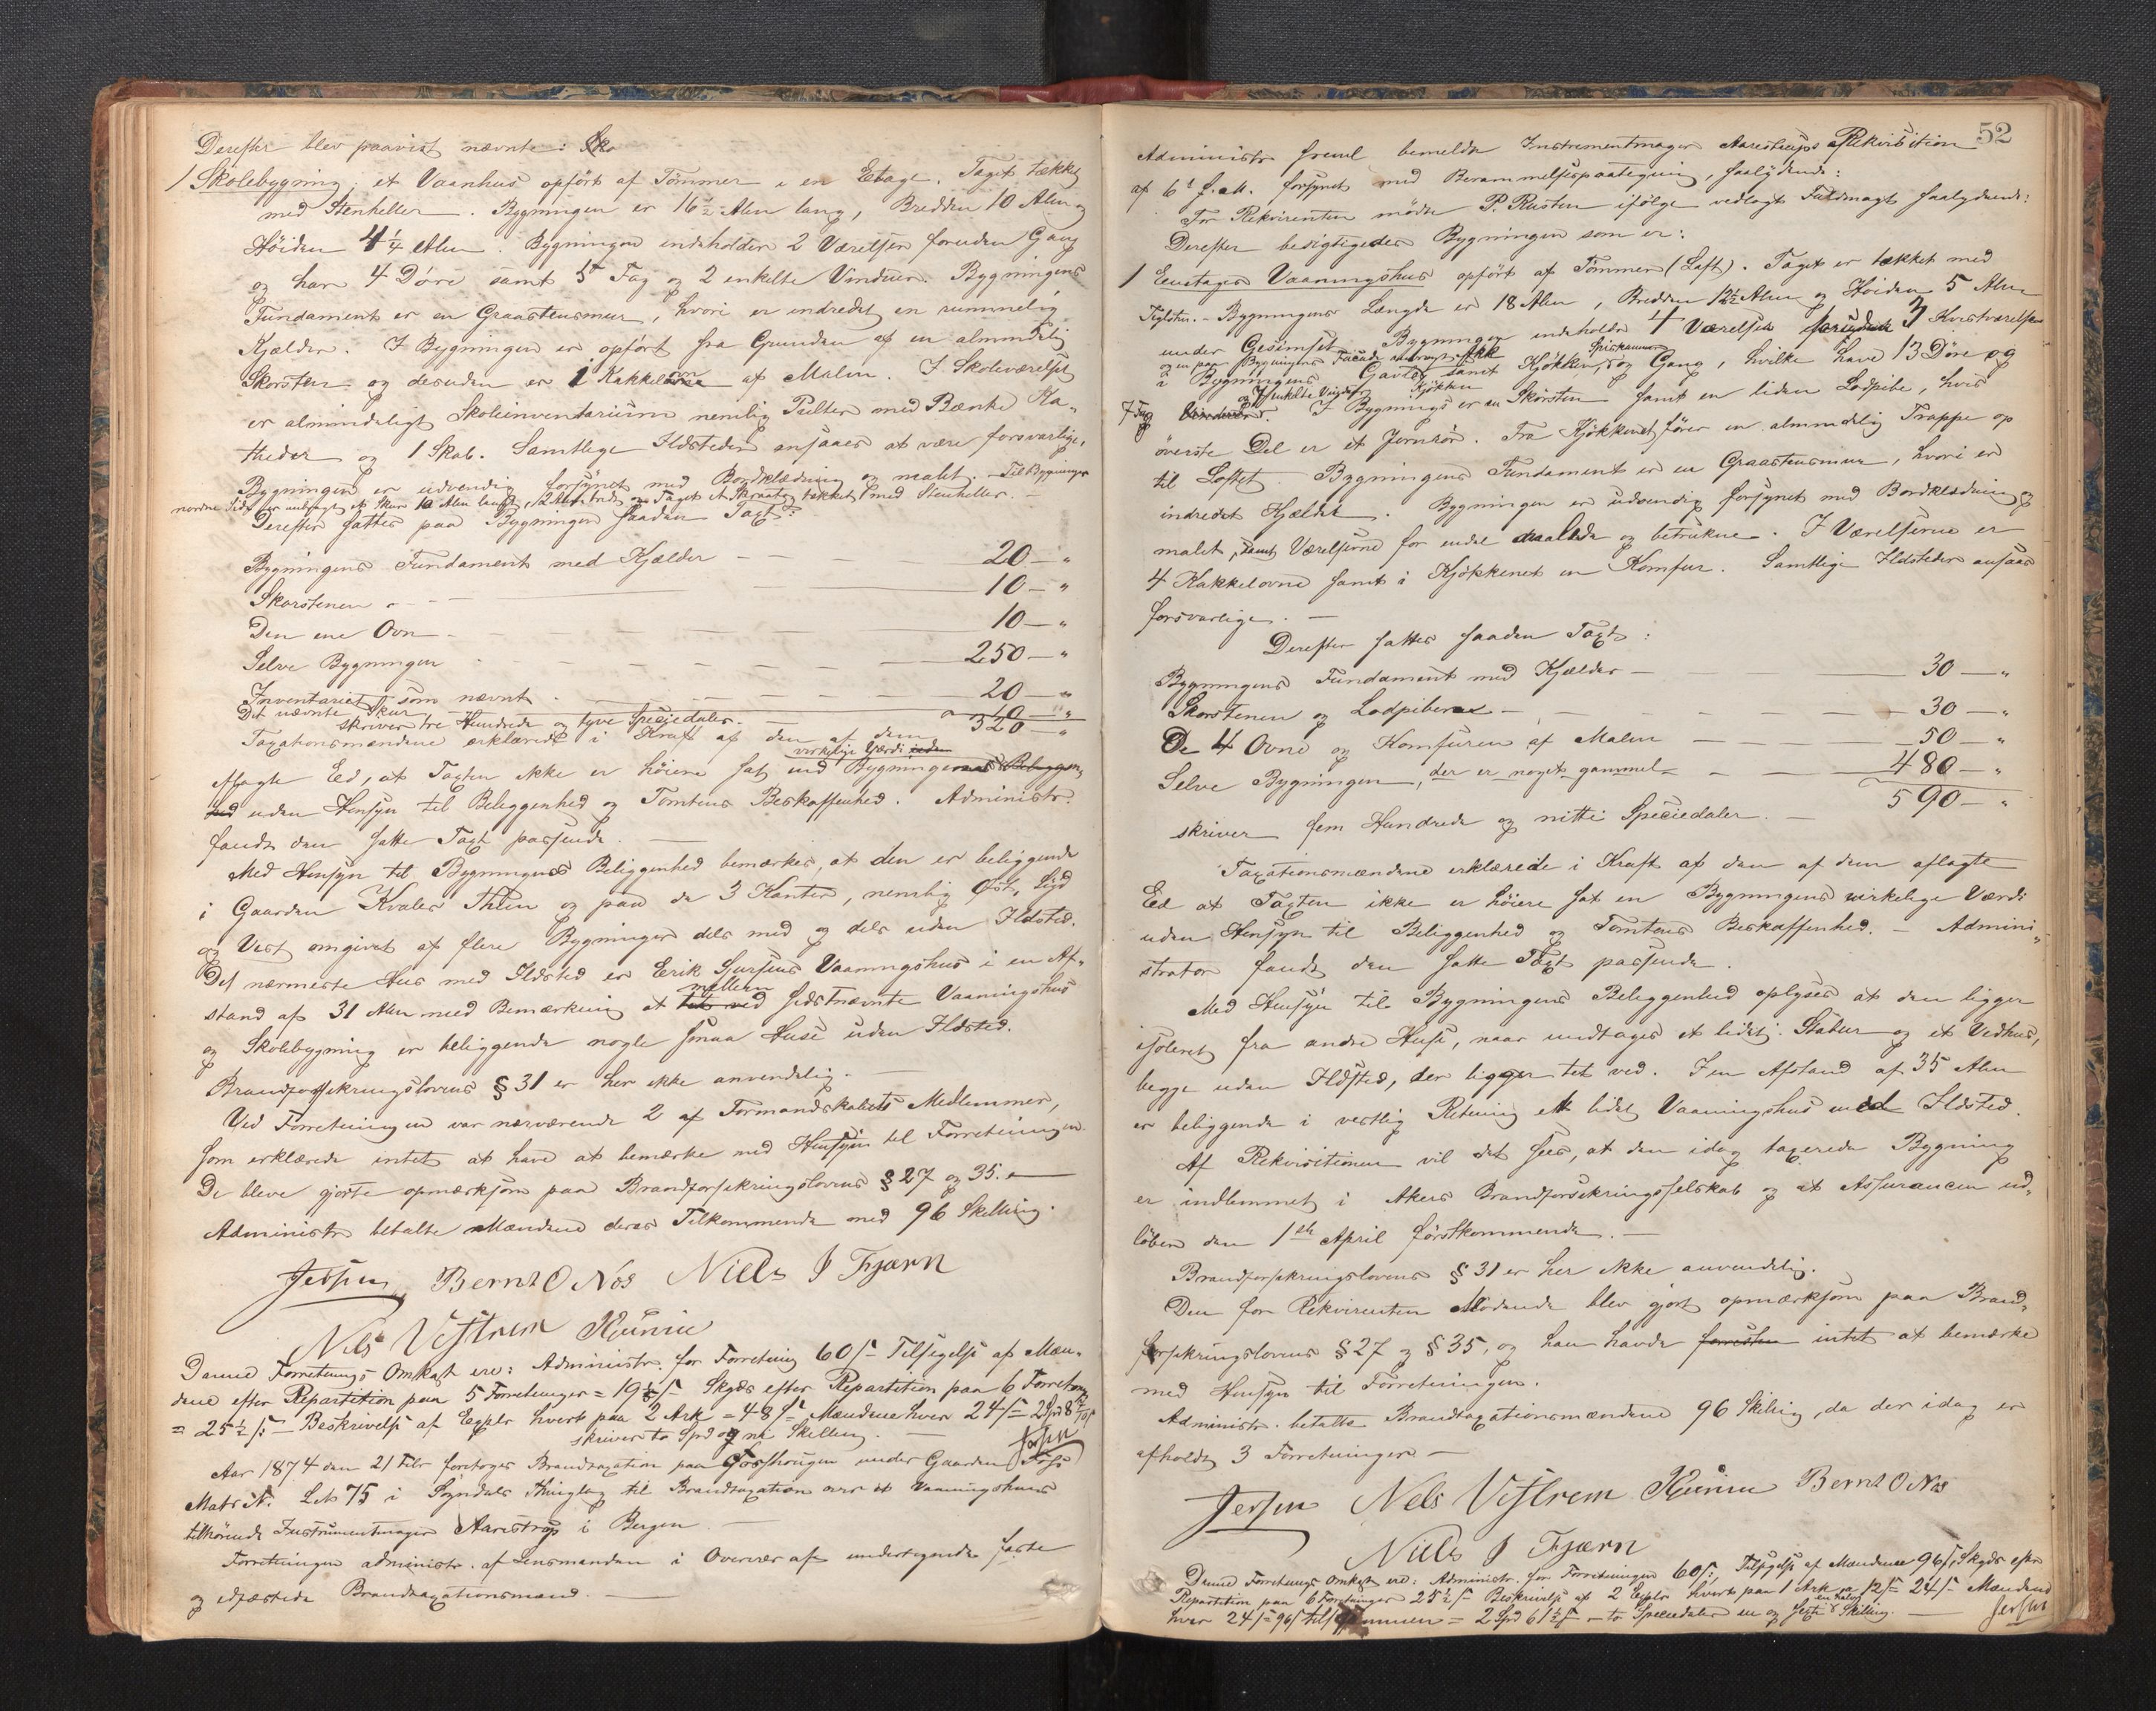 Derefter blev paavist nævnte:
1 Skolebygning, et Vaanhus opført af Tømmer i en Etage. Taget tækket
med Stenheller. Bygningen er 16½ Alen lang, Bredden 10 Alen og
Høiden 4¼ Alen. Bygningen indeholder 2 Værelser foruden Gang
og har 4 Døre samt 5 Fag og 2 enkelte Vinduer. Bygningens
Fundament er en Graastensmur, hvori er indredet en rummelig
Kjælder. I Bygningen er opført fra Grunden af en almindelig
Skorsten og desuden er 1 Kakkelovn af Malm. I Skoleværelset
er almindeligt Skoleinventarium nemlig Pulter med Bænke Ka-
theder og 1 Skab. Samtlige Ildsteder ansaaes at være forsvarlige.
Bygningen er udvendig forsynet med Bordklædning og malet. – Til Bygningens
nordre Side er anbragt et Skur 10 Alen langt, 2 Alen bredt og Taget et Skraatag tækket med Stenheller. –
Derefter sattes paa Bygningen saadan Taxt:
Bygningens Fundament med Kjælder — 20 — "
Skorstenen — 10 — "
Den ene Ovn — 10 — "
Selve Bygningen — 250 — "
Inventariet som nævnt — 20 — "
Det nævnte Skur — 10 — "
skriver tre Hundrede og tyve Speciedaler. — 320 — "
Taxationsmændene erklærede i Kraft af den af dem
aflagte Ed, at Taxten ikke er høiere sat end Bygningens virkelige Værdi
uden Hensyn til Beliggenhed og Tomtens Beskaffenhed. Administr.
fandt den satte Taxt passende. —
Med Hensyn til Bygningens Beliggenhed bemærkes, at den er beliggende
i Gaarden Kvales Thun og paa de 3 Kanter, nemlig Øst, Syd
og Vest omgivet af flere Bygninger dels med og dels uden Ildsted.
Det nærmeste Hus med Ildsted er Erik Sjursens Vaaningshus i en Af-
stand af 31 Alen med Bemærkning at mellem sidstnævnte Vaaningshus
og Skolebygning er beliggende nogle smaa Huse uden Ildsted.
Brandforsikringslovens § 31 er her ikke anvendelig. —
Ved Forretningen var nærværende 2 af Formandskabets Medlemmer,
som erklærede intet at have at bemærke med Hensyn til Forretningen.
De bleve gjorte opmærksom paa Brandforsikringslovens § 27 og 35. —
Administr. betalte Mændene deres Tilkommende med 96 Skilling.
Jersin Bernt O Nos Niels J Fjærn
Nels Vestrem
Denne Forretnings Omkost ere: Administr. for Forretning 60 s – Tilsigelse af Mæn-
dene efter Repartition paa 5 Forretninger = 19⅕ s Skyds efter Repartition paa 6 Forretn.
= 25½ s – Beskrivelse afExplr hvert paa 2 Ark = 48 s Mændene hver 24 s =
skriver to Spd og Skilling. — Jersin
Aar 1874 den 21 Febr foretoges Brandtaxation paa Fosshougen under Gaarden Foss
Matr. N. L.No 75 i Sogndals Thinglag til Brandtaxation over et Vaaningshuus
tilhørende Instrumentmager Aarestrup i Bergen. —
Forretningen administr. af Lensmanden i Overvær af undertegnede faste
og edfæstede Brandtaxationsmænd. —
52
Administr. freml. bemeldte Instrumentmager Aarestrups Rekvisition
af 6t f. M. forsynet med Berammelsespaategning, saalydende:
For Rekvirenten mødte P. Rusten ifølge vedlagt Fuldmagt saalydende:
Derefter besigtigedes Bygningen som er:
1 Eenetages Vaaningshus opført af Tømmer (Laft). Taget er tækket med
Teglsten. – Bygningens Længde er 18 Alen, Bredden 12½ Alen og Høiden 5 Alen
under Gesimset. Bygningen indeholder 4 Værelser foruden 3 Kvistværelser
i Bygningens Gavle samt Kjøkken, Spiskammer og Gang, hvilke have 13 Døre og
7 Fag og enkelte Vinduer. I Bygnings Kjøkken er en Skorsten samt en liden Lodpibe, hvis
øverste Del er et Jernrør. Fra Kjøkkenet fører en almindelig Trappe op
til Loftet. Bygningens Fundament er en Graastensmur, hvori er
indredet Kjælder. Bygningen er udvendig forsynet med Bordklædning og
malet, samt Værelserne for endel malede og betrukne. I Værelserne er
4 Kakkelovne samt i Kjøkkenet en Komfur. Samtlige Ildsteder ansaaes
forsvarlige. —
Derefter sattes saadan Taxt:
Bygningens Fundament med Kjælder — 30 — "
Skorstenen og Lodpiberne — 30 — "
De 4 Ovne og Komfuren af Malm — 50 — "
Selve Bygningen, der er noget gammel — 480 — "
590 — "
skriver fem Hundrede og nitti Speciedaler. —
Taxationsmændene erklærede i Kraft af den af dem aflagte
Eid at Taxten ikke er høiere sat en Bygningens virkelige Værdi
uden Hensyn til Beliggenhed og Tomtens Beskaffenhed. – Admini-
strator fandt den satte Taxt passende.
Med Hensyn til Bygningens Beliggenhed oplyses at den ligger
isoleret fra andre Huse, naar undtages et lidet Stabur og et Vedhus,
begge uden Ildsted, der ligger tet ved. I en Afstand af 35 Alen
er beliggende i vestlig Retning ett lidet Vaaningshus med Ildsted.
Af Rekvisitionen vil det sees, at den idag taxerede Bygning
er indlemmet i Akers Brandforsikringsselskab og at Assurancen ud-
løber den 1ste April førstkommende. —
Brandforsikringslovens § 31 er her ikke anvendelig.
Den for Rekvirenten Mødende blev gjort opmærksom paa Brand-
forsikringslovens § 27 og § 35, og han havde forresten intet at bemærke
med Hensyn til Forretningen.
Administr. betalte Brandtaxationsmændene 96 Skilling, da der idag er
afholdt 3 Forretninger —
Jersin Nels Vestrem Bernt O Nos
Niels J Fjærn
Denne Forretnings Omkost ere: Administr. for Forretningen 60 s, Tilsigelse af Mændene 96 s, Skyds efter
Repartition paa 6 Forretninger 25½ s – Beskrivelse af 2 Explr hvert paa 1 Ark a 12 s = 24 s – Mændene
hver 24 s = 96 s tilsammen = 2 Spd 61½ s – to Speciedaler en og sexti en halv Skilling. — Jersin